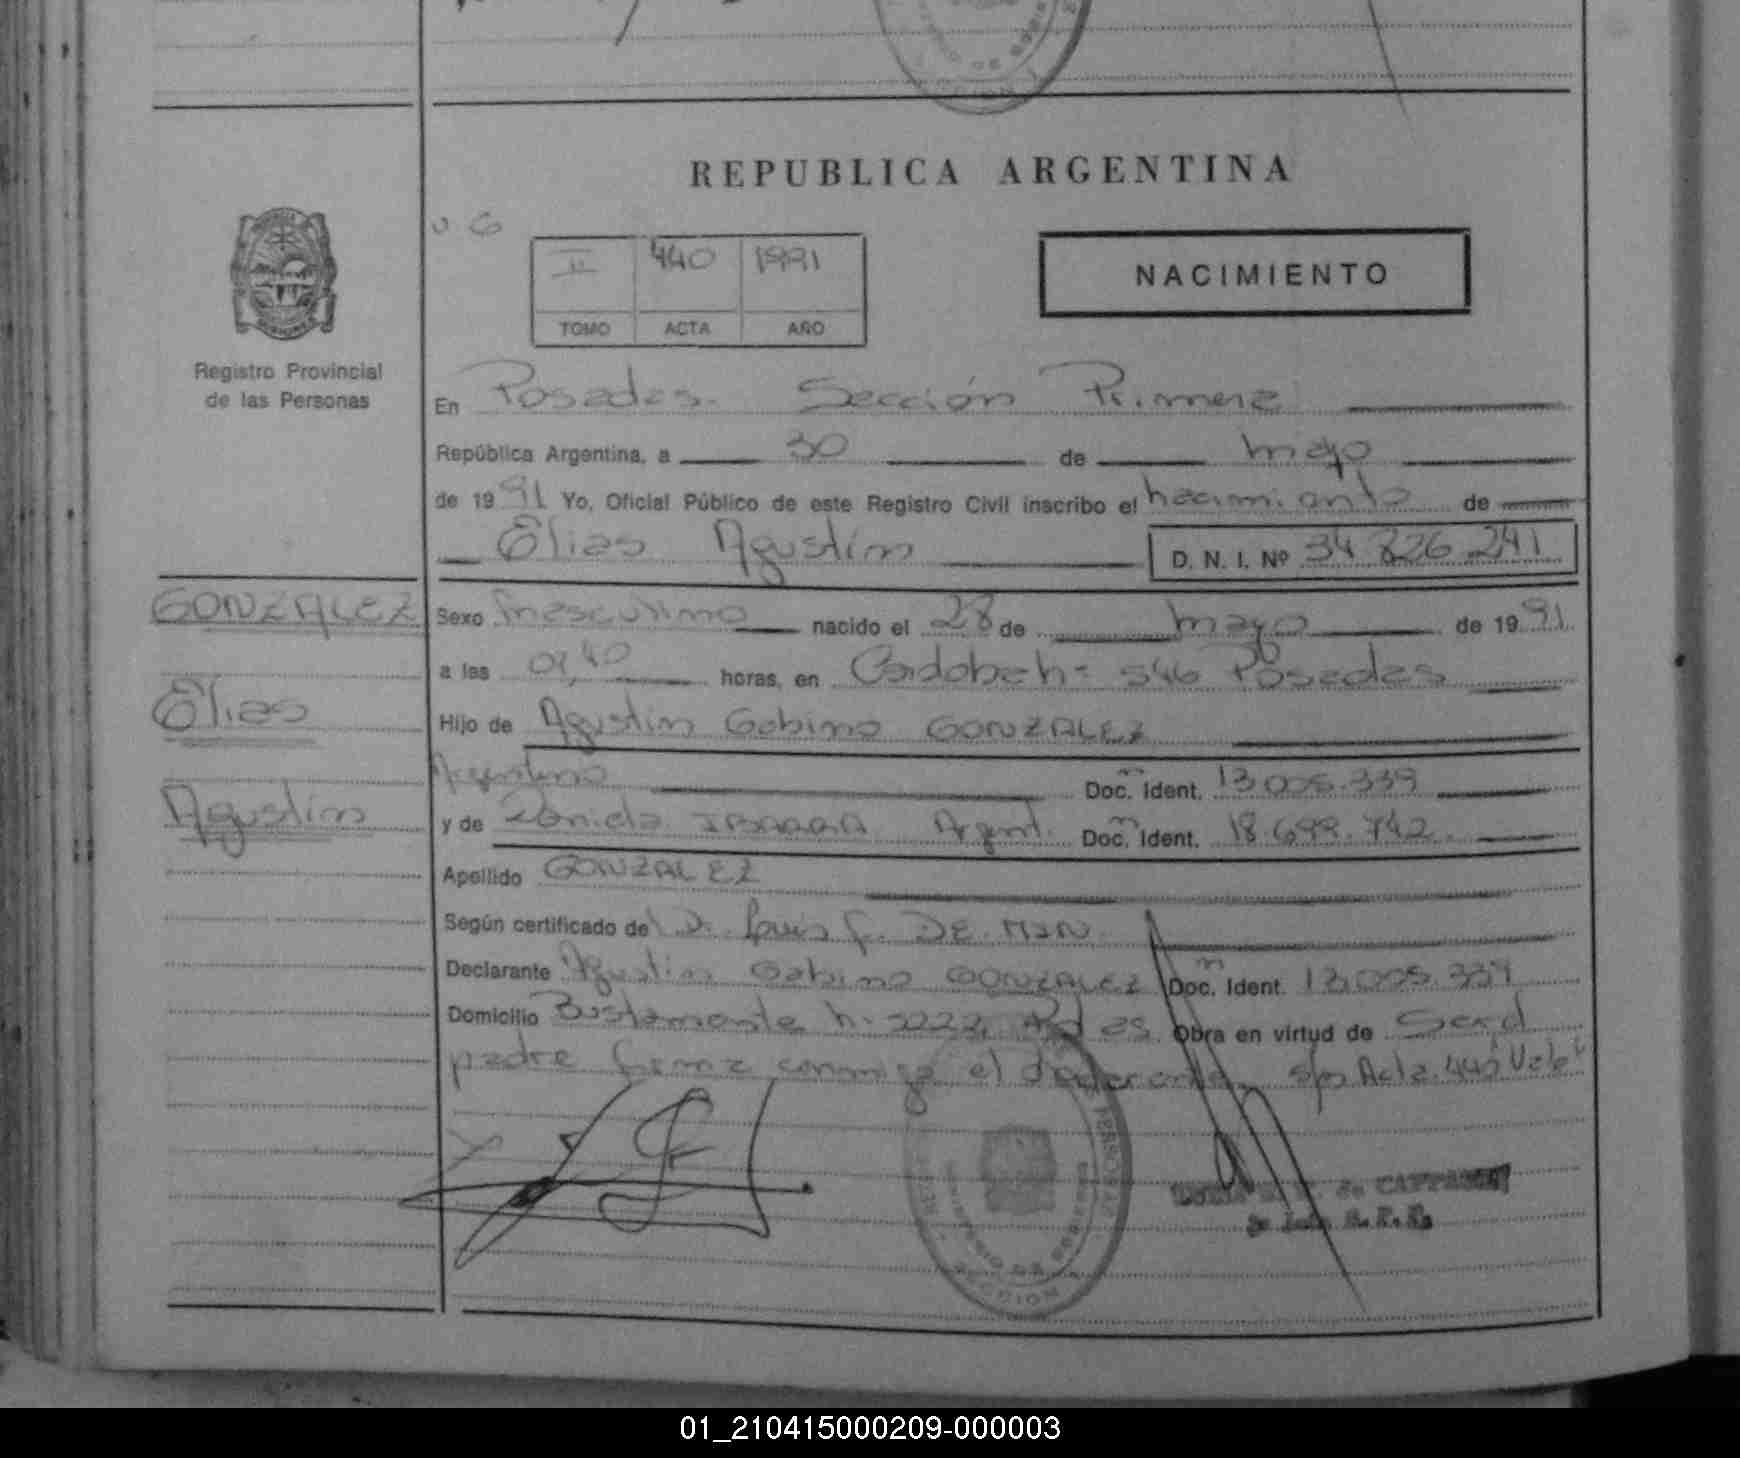 REPUBLICA ARGENTINA
II 440 1991
TOMO ACTA AÑO
NACIMIENTO
Registro Provincial
de las Personas
En Posadas. Sección Primera
República Argentina, a 30 de mayo
de 1991 Yo, Oficial Público de este Registro Civil inscribo el nacimiento de
Elias Agustín D. N. I. Nº 34 826.241
GONZALEZ
Elias
Agustín
Sexo masculino nacido el 28 de mayo de 1991
a las horas, en Cordoba n= 546 Posadas
Hijo de Agustin Gabino GONZALEZ
Argentino Doc. Ident. 13.005.339
y de IBARRA Argent. Doc. Ident. 18.699.742
Apellido GONZALEZ
Según certificado de D. Luis DE
Declarante Agustin Gabino GONZALEZ Doc. Ident. 13.005.339
Domicilio Bustamante Obra en virtud de Ser el
padre firma conmigo el declarante Acta 440 Vale
01_210415000209-000003